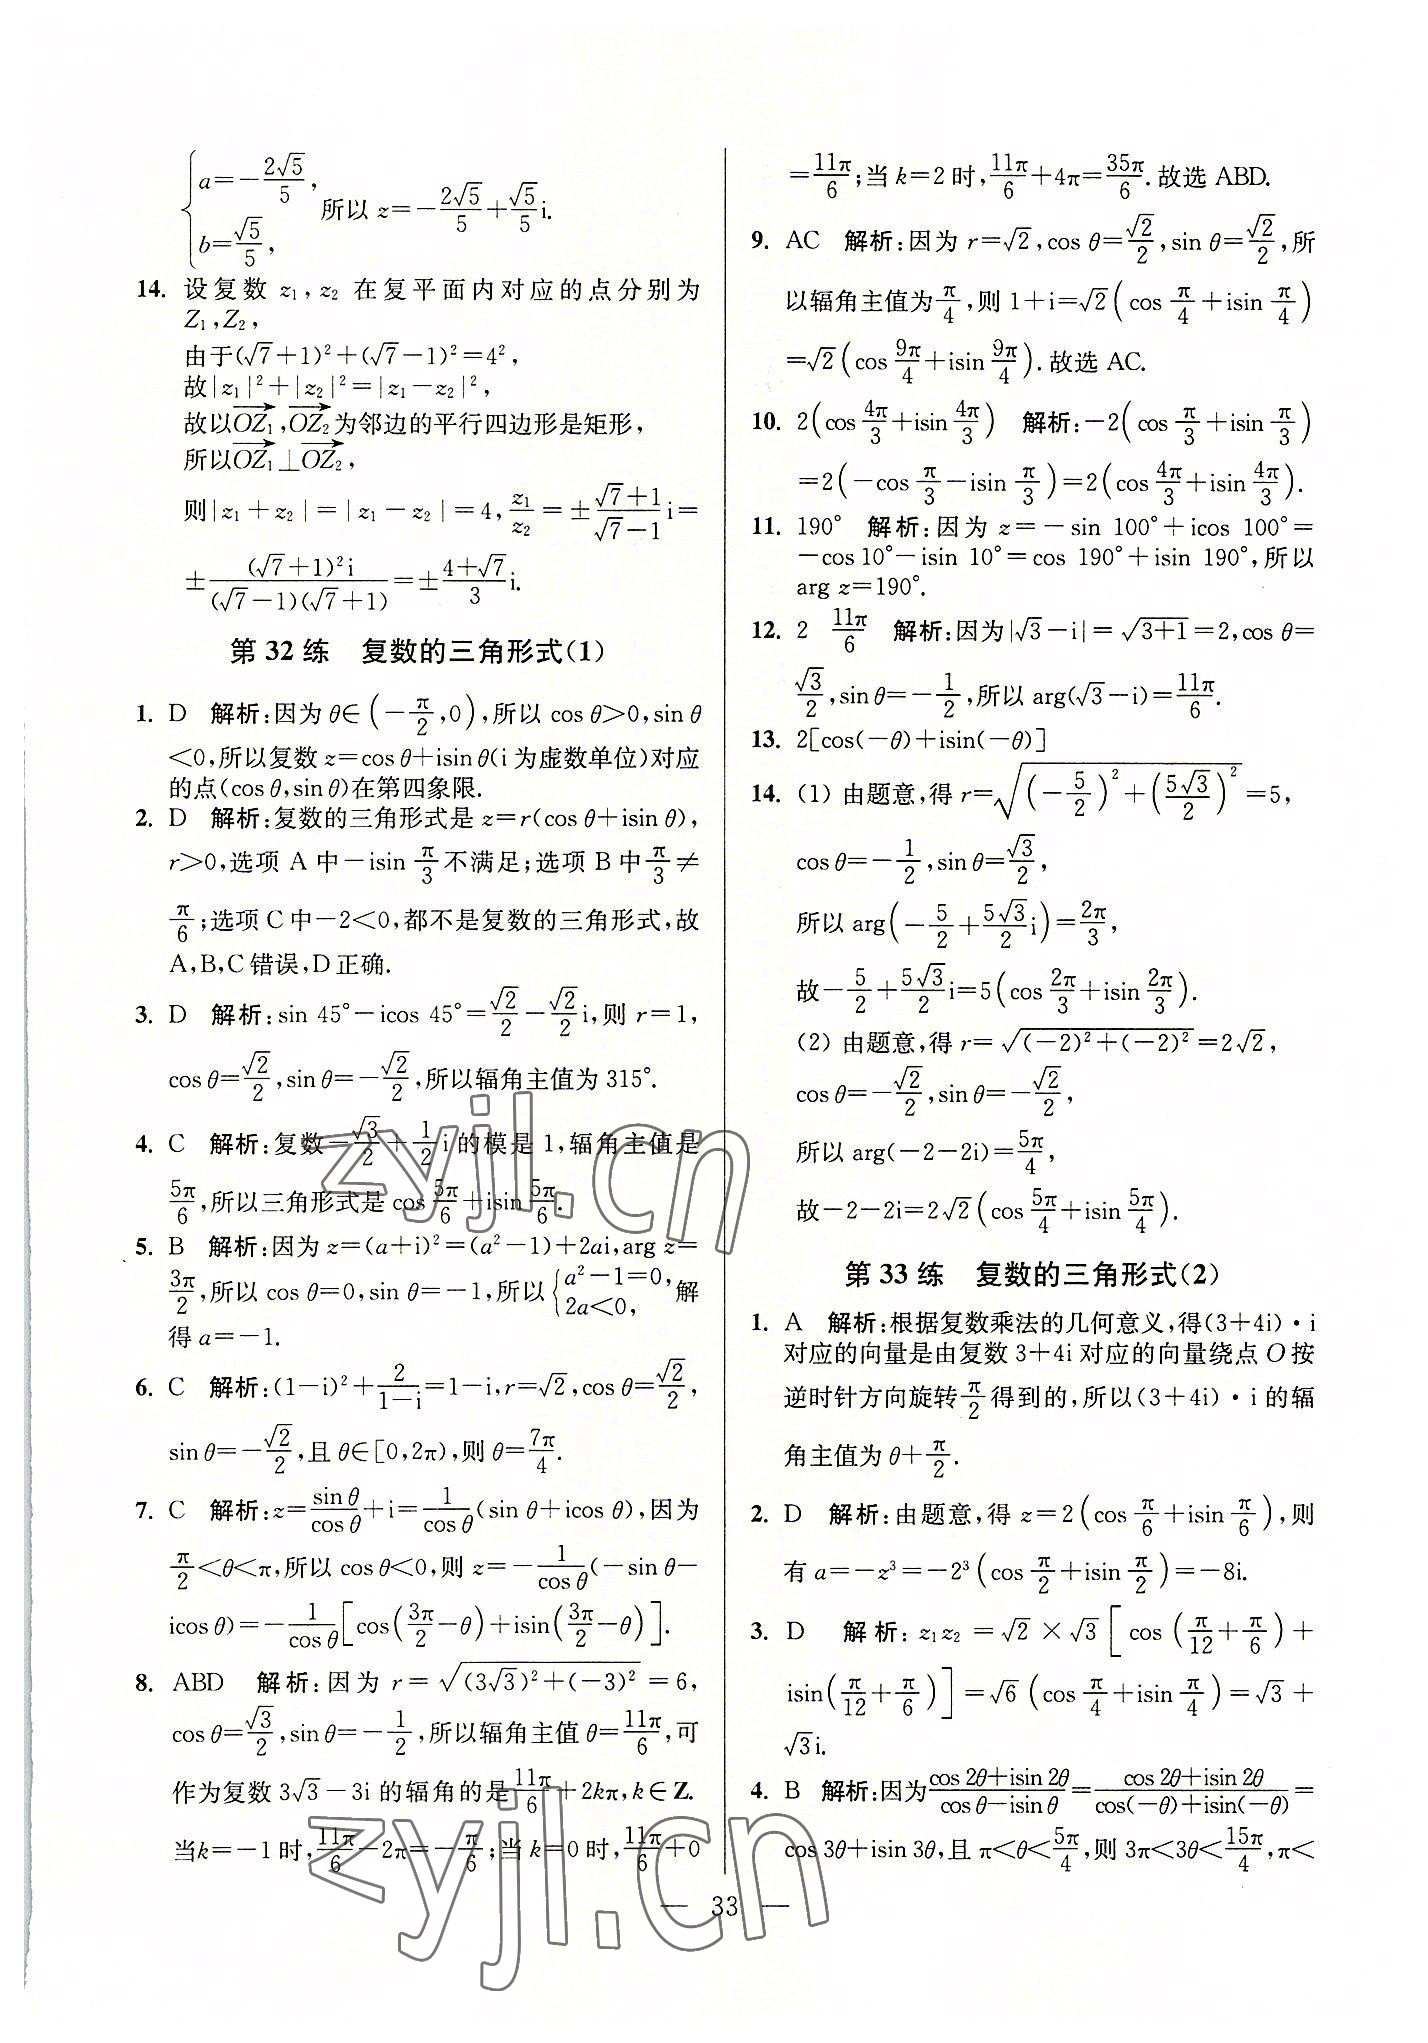 {a=-2√5/5,
b=√5/5, 所以 z=-2√5/5+√5/5 i.
14. 设复数 z₁,z₂ 在复平面内对应的点分别为
Z₁,Z₂,
由于(√7+1)²+(√7-1)²=4²,
故|z₁|²+|z₂|²=|z₁-z₂|²,
故以OZ₁→,OZ₂→为邻边的平行四边形是矩形,
所以OZ₁→⊥OZ₂→,
则|z₁+z₂|=|z₁-z₂|=4,z₁/z₂=±(√7+1)/(√7-1) i=
±(√7+1)²i/((√7-1)(√7+1))=±(4+√7)/3 i.
第 32 练 复数的三角形式(1)
1. D 解析:因为 θ∈(-π/2,0),所以 cos θ>0,sin θ
<0,所以复数 z=cos θ+isin θ(i 为虚数单位)对应
的点(cos θ,sin θ)在第四象限.
2. D 解析:复数的三角形式是 z=r(cos θ+isin θ),
r>0,选项 A 中-isin π/3 不满足;选项 B 中 π/3≠
π/6;选项 C 中-2<0,都不是复数的三角形式,故
A,B,C 错误,D 正确.
3. D 解析:sin 45°-icos 45°=√2/2-√2/2 i,则 r=1,
cos θ=√2/2,sin θ=-√2/2,所以辐角主值为 315°.
4. C 解析:复数=√3/2+1/2 i 的模是 1,辐角主值是
5π/6,所以三角形式是 cos 5π/6+isin 5π/6.
5. B 解析:因为 z=(a+i)²=(a²-1)+2ai,arg z=
3π/2,所以 cos θ=0,sin θ=-1,所以{a²-1=0, 2a<0, 解
得 a=-1.
6. C 解析:(1-i)²+2/(1-i)=1-i,r=√2,cos θ=√2/2,
sin θ=-√2/2,且 θ∈[0,2π),则 θ=7π/4.
7. C 解析:z=sin θ/cos θ+i=1/cos θ(sin θ+icos θ),因为
π/2<θ<π,所以 cos θ<0,则 z=-1/cos θ(-sin θ-
icos θ)=-1/cos θ[cos(3π/2-θ)+isin(3π/2-θ)].
8. ABD 解析:因为 r=√((3√3)²+(-3)²)=6,
cos θ=√3/2,sin θ=-1/2,所以辐角主值 θ=11π/6,可
作为复数 3√3-3i 的辐角的是 11π/6+2kπ,k∈Z.
当k=-1 时,11π/6-2π=-π/6;当 k=0 时,11π/6+0
=11π/6;当 k=2 时,11π/6+4π=35π/6.故选 ABD.
9. AC 解析:因为 r=√2,cos θ=√2/2,sin θ=√2/2,所
以辐角主值为π/4,则 1+i=√2(cos π/4+isin π/4)
=√2(cos 9π/4+isin 9π/4).故选 AC.
10. 2(cos 4π/3+isin 4π/3) 解析:-2(cos π/3+isin π/3)
=2(-cos π/3-isin π/3)=2(cos 4π/3+isin 4π/3).
11. 190° 解析:因为 z=-sin 100°+icos 100°=
-cos 10°-isin 10°=cos 190°+isin 190°,所以
arg z=190°.
12. 2 11π/6 解析:因为|√3-i|=√(3+1)=2,cos θ=
√3/2,sin θ=-1/2,所以 arg(√3-i)=11π/6.
13. 2[cos(-θ)+isin(-θ)]
14. (1) 由题意,得 r=√((-5/2)²+(5√3/2)²)=5,
cos θ=-1/2,sin θ=√3/2,
所以 arg(-5/2+5√3/2 i)=2π/3,
故-5/2+5√3/2 i=5(cos 2π/3+isin 2π/3).
(2) 由题意,得 r=√((-2)²+(-2)²)=2√2,
cos θ=-√2/2,sin θ=-√2/2,
所以 arg(-2-2i)=5π/4,
故-2-2i=2√2(cos 5π/4+isin 5π/4).
第 33 练 复数的三角形式(2)
1. A 解析:根据复数乘法的几何意义,得(3+4i)·i
对应的向量是由复数 3+4i 对应的向量绕点 O 按
逆时针方向旋转π/2得到的,所以(3+4i)·i 的辐
角主值为 θ+π/2.
2. D 解析:由题意,得 z=2(cos π/6+isin π/6),则
有 a=-z³=-2³(cos π/2+isin π/2)=-8i.
3. D 解析:z₁z₂=√2×√3[cos(π/12+π/6)+
isin(π/12+π/6)]=√6(cos π/4+isin π/4)=√3+
√3i.
4. B 解析:因为(cos 2θ+isin 2θ)/(cos θ-isin θ)=(cos 2θ+isin 2θ)/(cos(-θ)+isin(-θ))=
cos 3θ+isin 3θ,且 π<θ<5π/4,则 3π<3θ<15π/4,π<
— 33 —
zyjl.cn
zyjl.cn